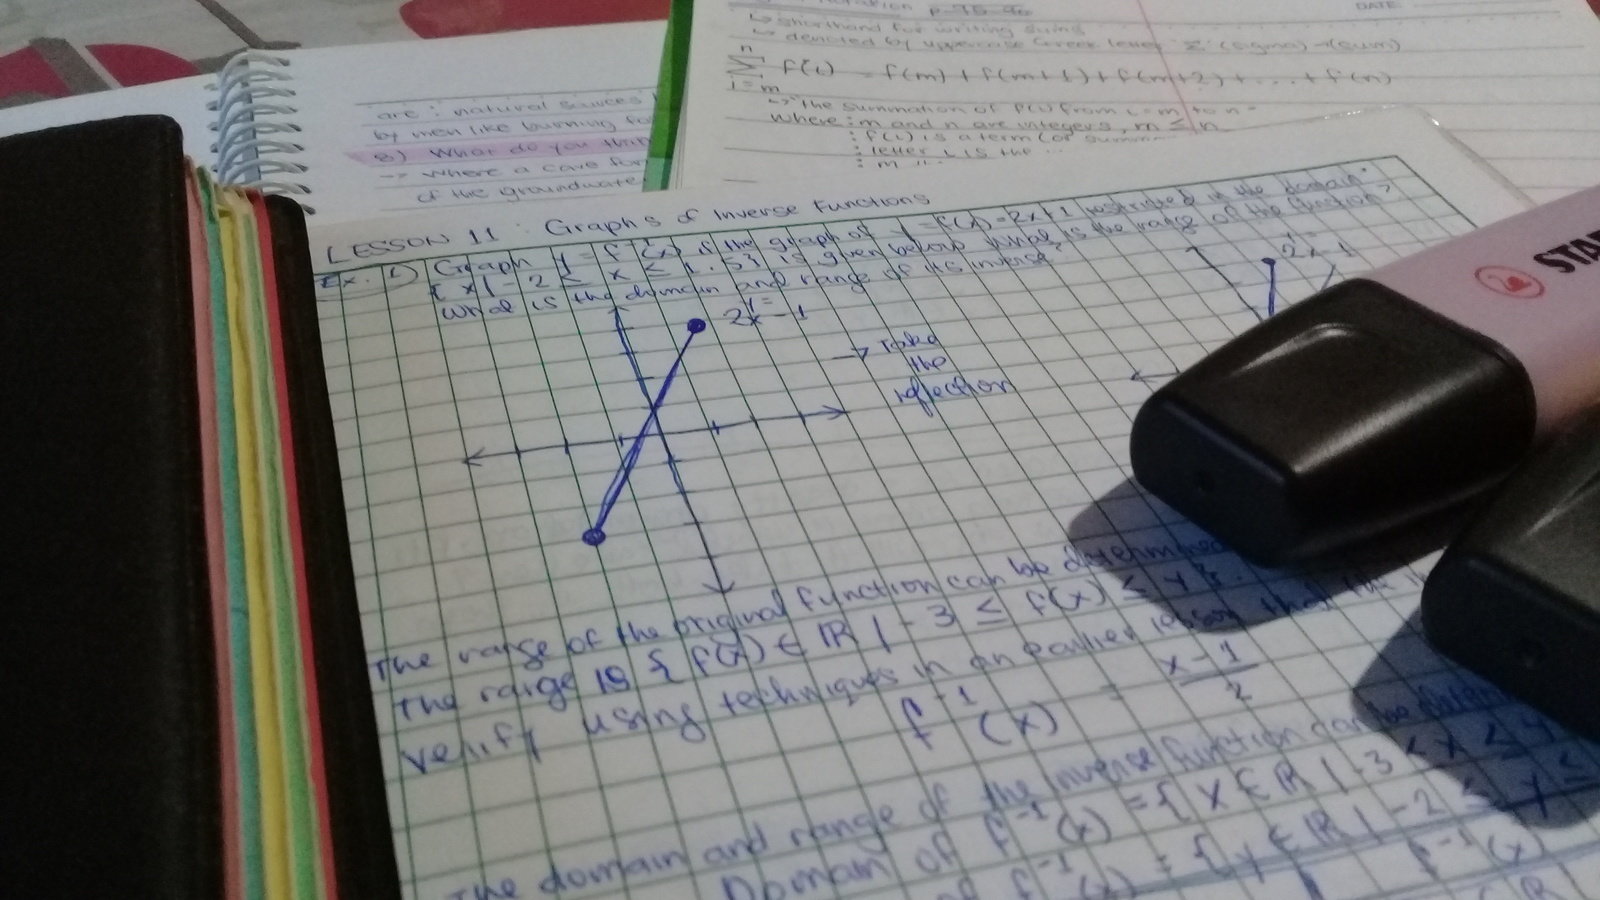 p. 95-96
DATE:
↳ shorthand for writing sums
↳ denoted by uppercase Greek letter Σ (sigma) → (sum)
n
Σ f(i) = f(m) + f(m+1) + f(m+2) + ... + f(n)
i=m
↳ the summation of f(i) from i=m to n
where: m and n are integers, m ≤ n
: f(i) is a term (or summ
: letter i is the
: m
are: natural sources
by men like burning fo
8) What do you thin
→ where a cave for
of the groundwate
LESSON 11: Graphs of Inverse Functions
Ex. 1) Graph y = f⁻¹(x) if the graph of y = f(x) = 2x+1 restricted in the domain
{x | -2 ≤ x ≤ 1.5} is given below. What is the range of the function?
What is the domain and range of its inverse
y=
2x-1
→ Take
the
reflection
y=
2x-1
STA
The range of the original function can be determined
The range is {f(x) ∈ ℝ | -3 ≤ f(x) ≤ 4}.
verify using techniques in an earlier lesson that the
f⁻¹(x) = x-1
2
The domain and range of the inverse function can be determ
Domain of f⁻¹(x) = {x ∈ ℝ | -3 ≤ x ≤ 4
of f⁻¹(x) = {y ∈ ℝ | -2 ≤ y ≤
f⁻¹(x)